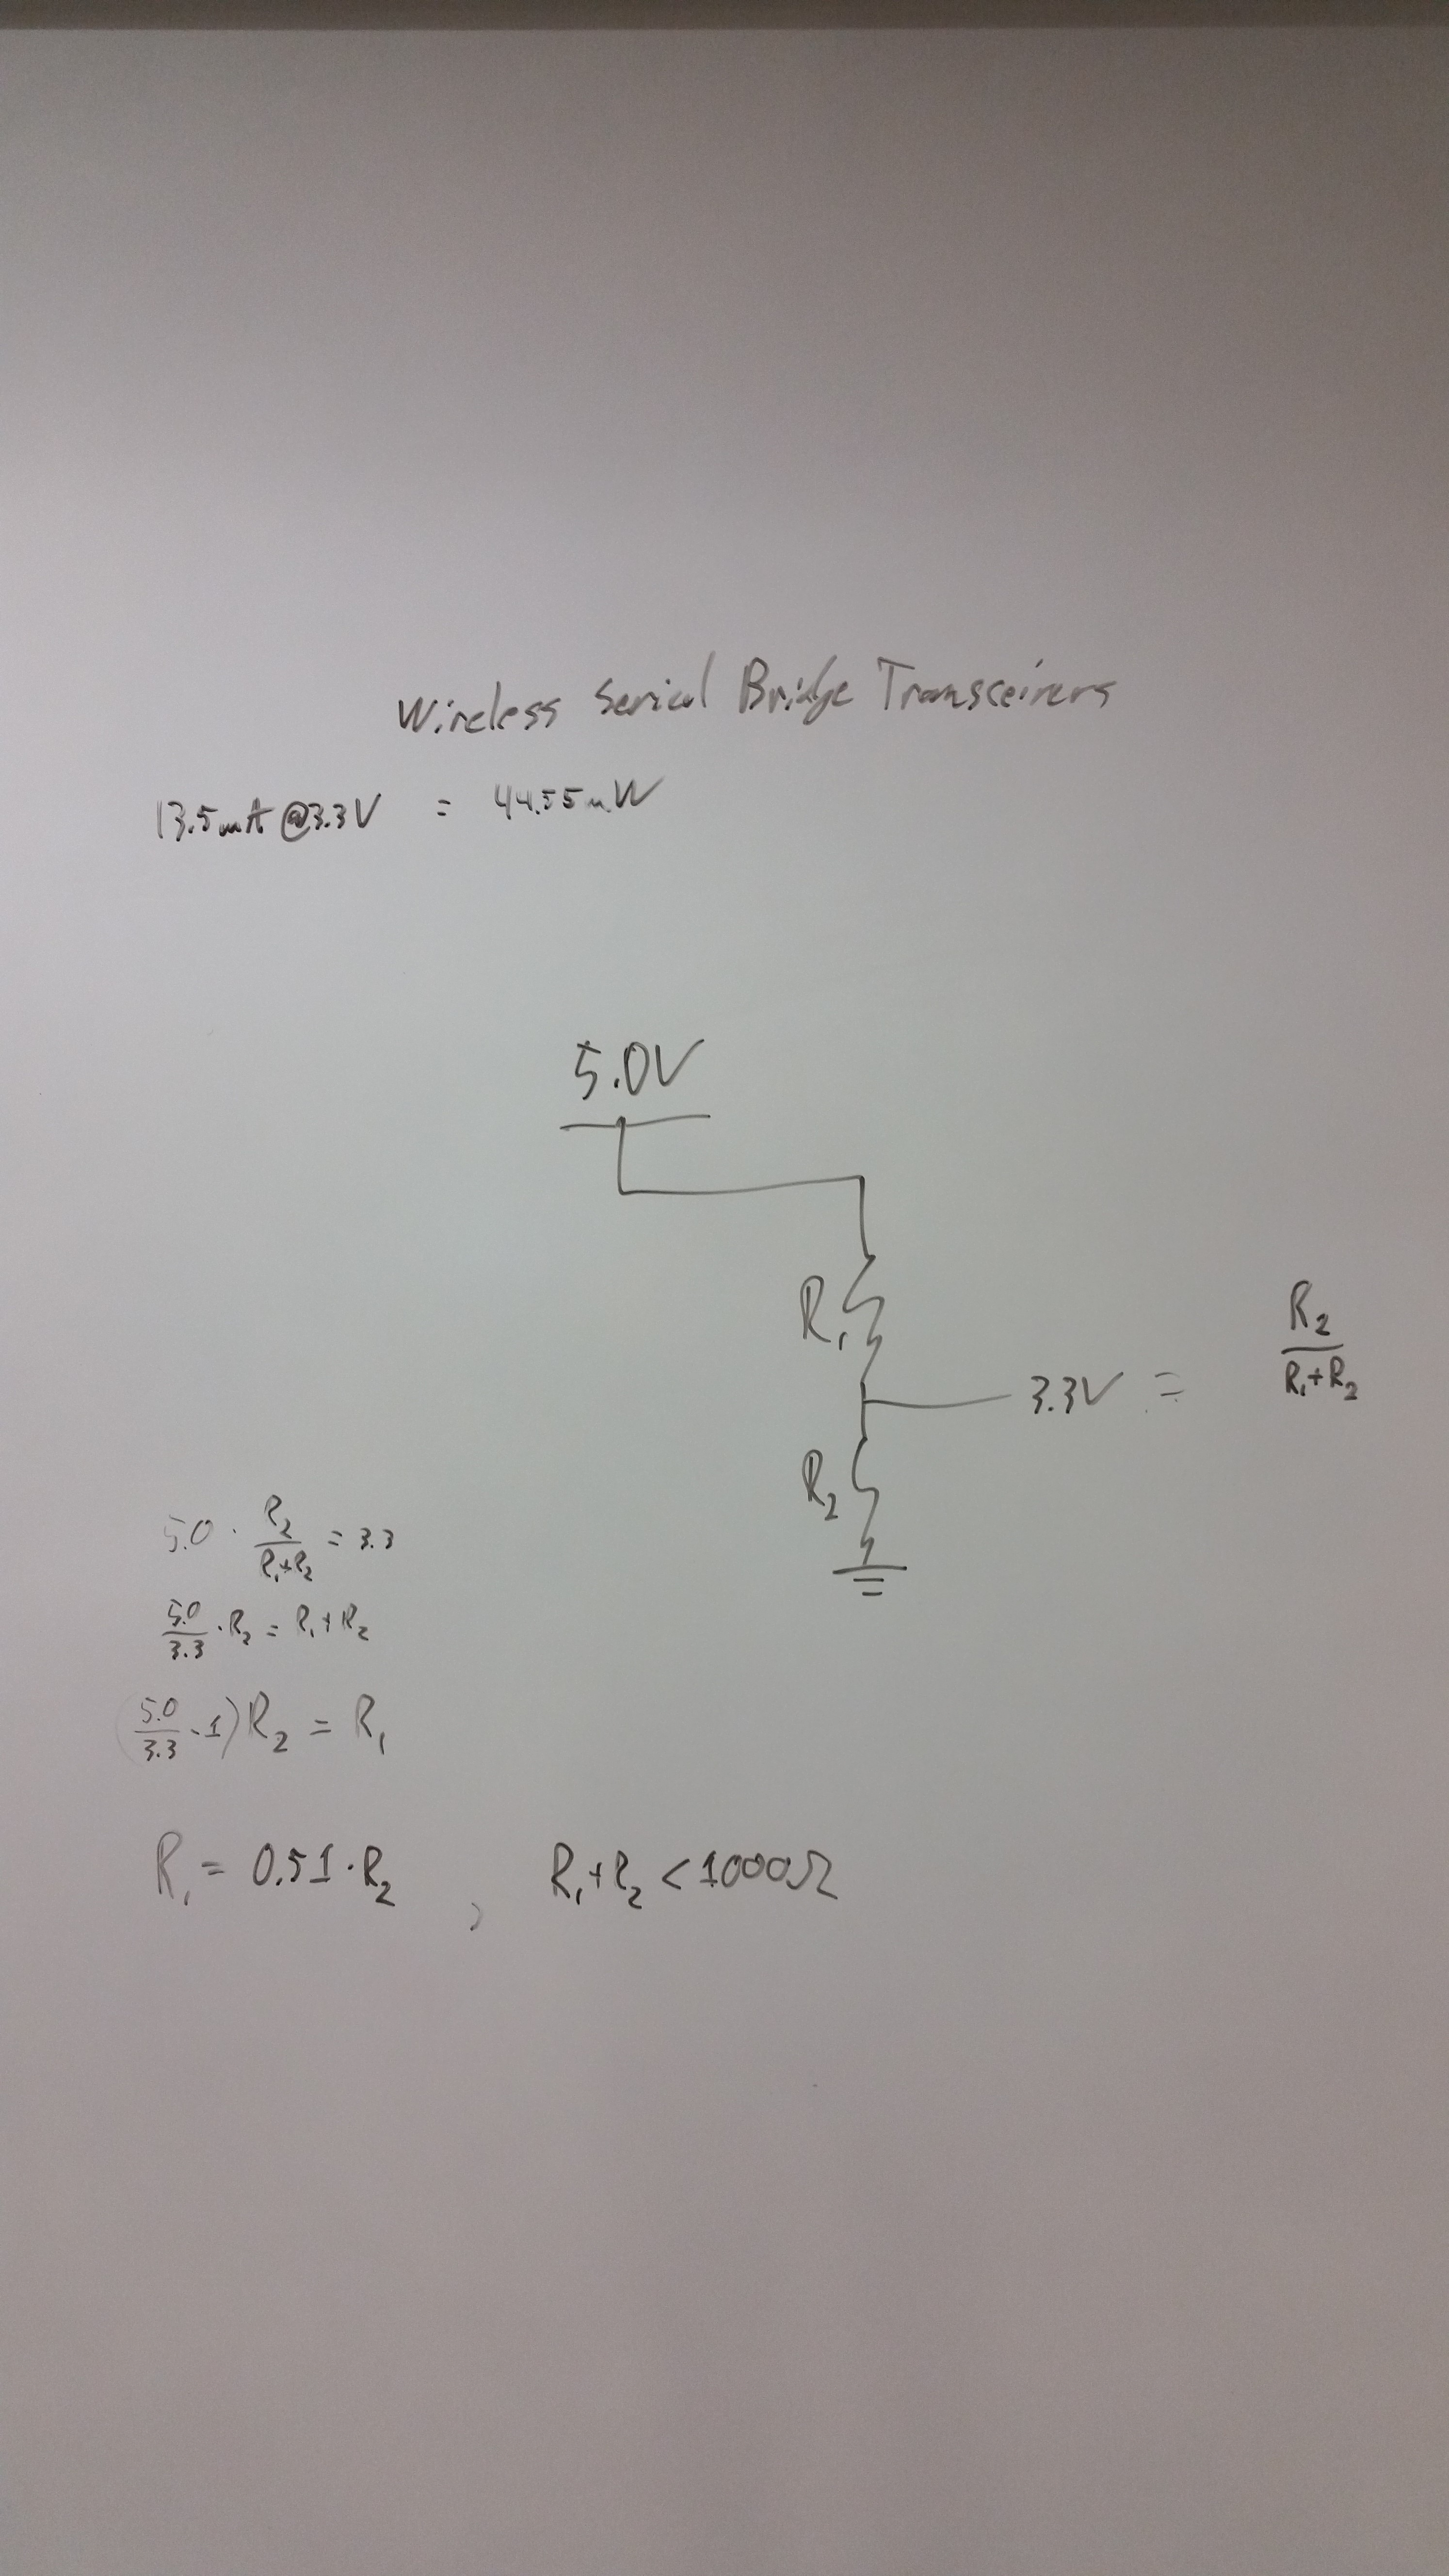 Wireless Serial Bridge Transceivers
13.5mA @3.3V = 44.55mW
5.0V
R₁
3.3V = R₂/(R₁+R₂)
R₂
5.0 · R₂/(R₁+R₂) = 3.3
5.0/3.3 · R₂ = R₁+R₂
(5.0/3.3 - 1) R₂ = R₁
R₁ = 0.51·R₂ , R₁+R₂ < 1000Ω